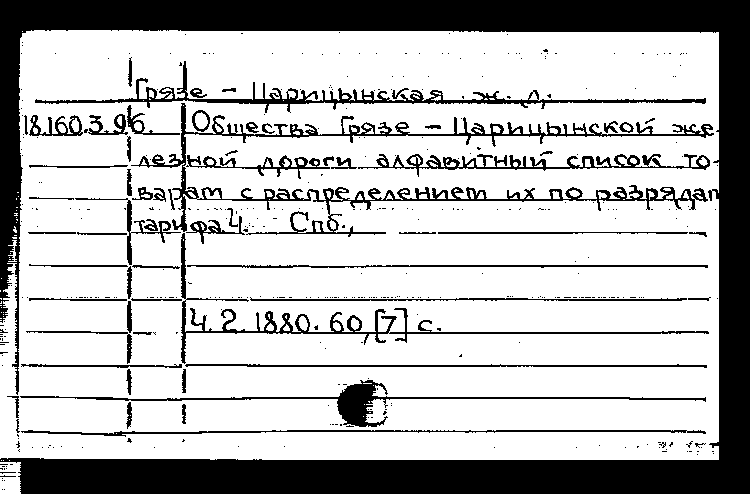 Грязе - Царицынская ж. д.
18.160.3.96. Общества Грязе - Царицынской же-
лезной дороги алфавитный список то-
варам с распределением их по разрядам
тарифа Ч. Спб.,
Ч. 2. 1880. 60, [7] с.